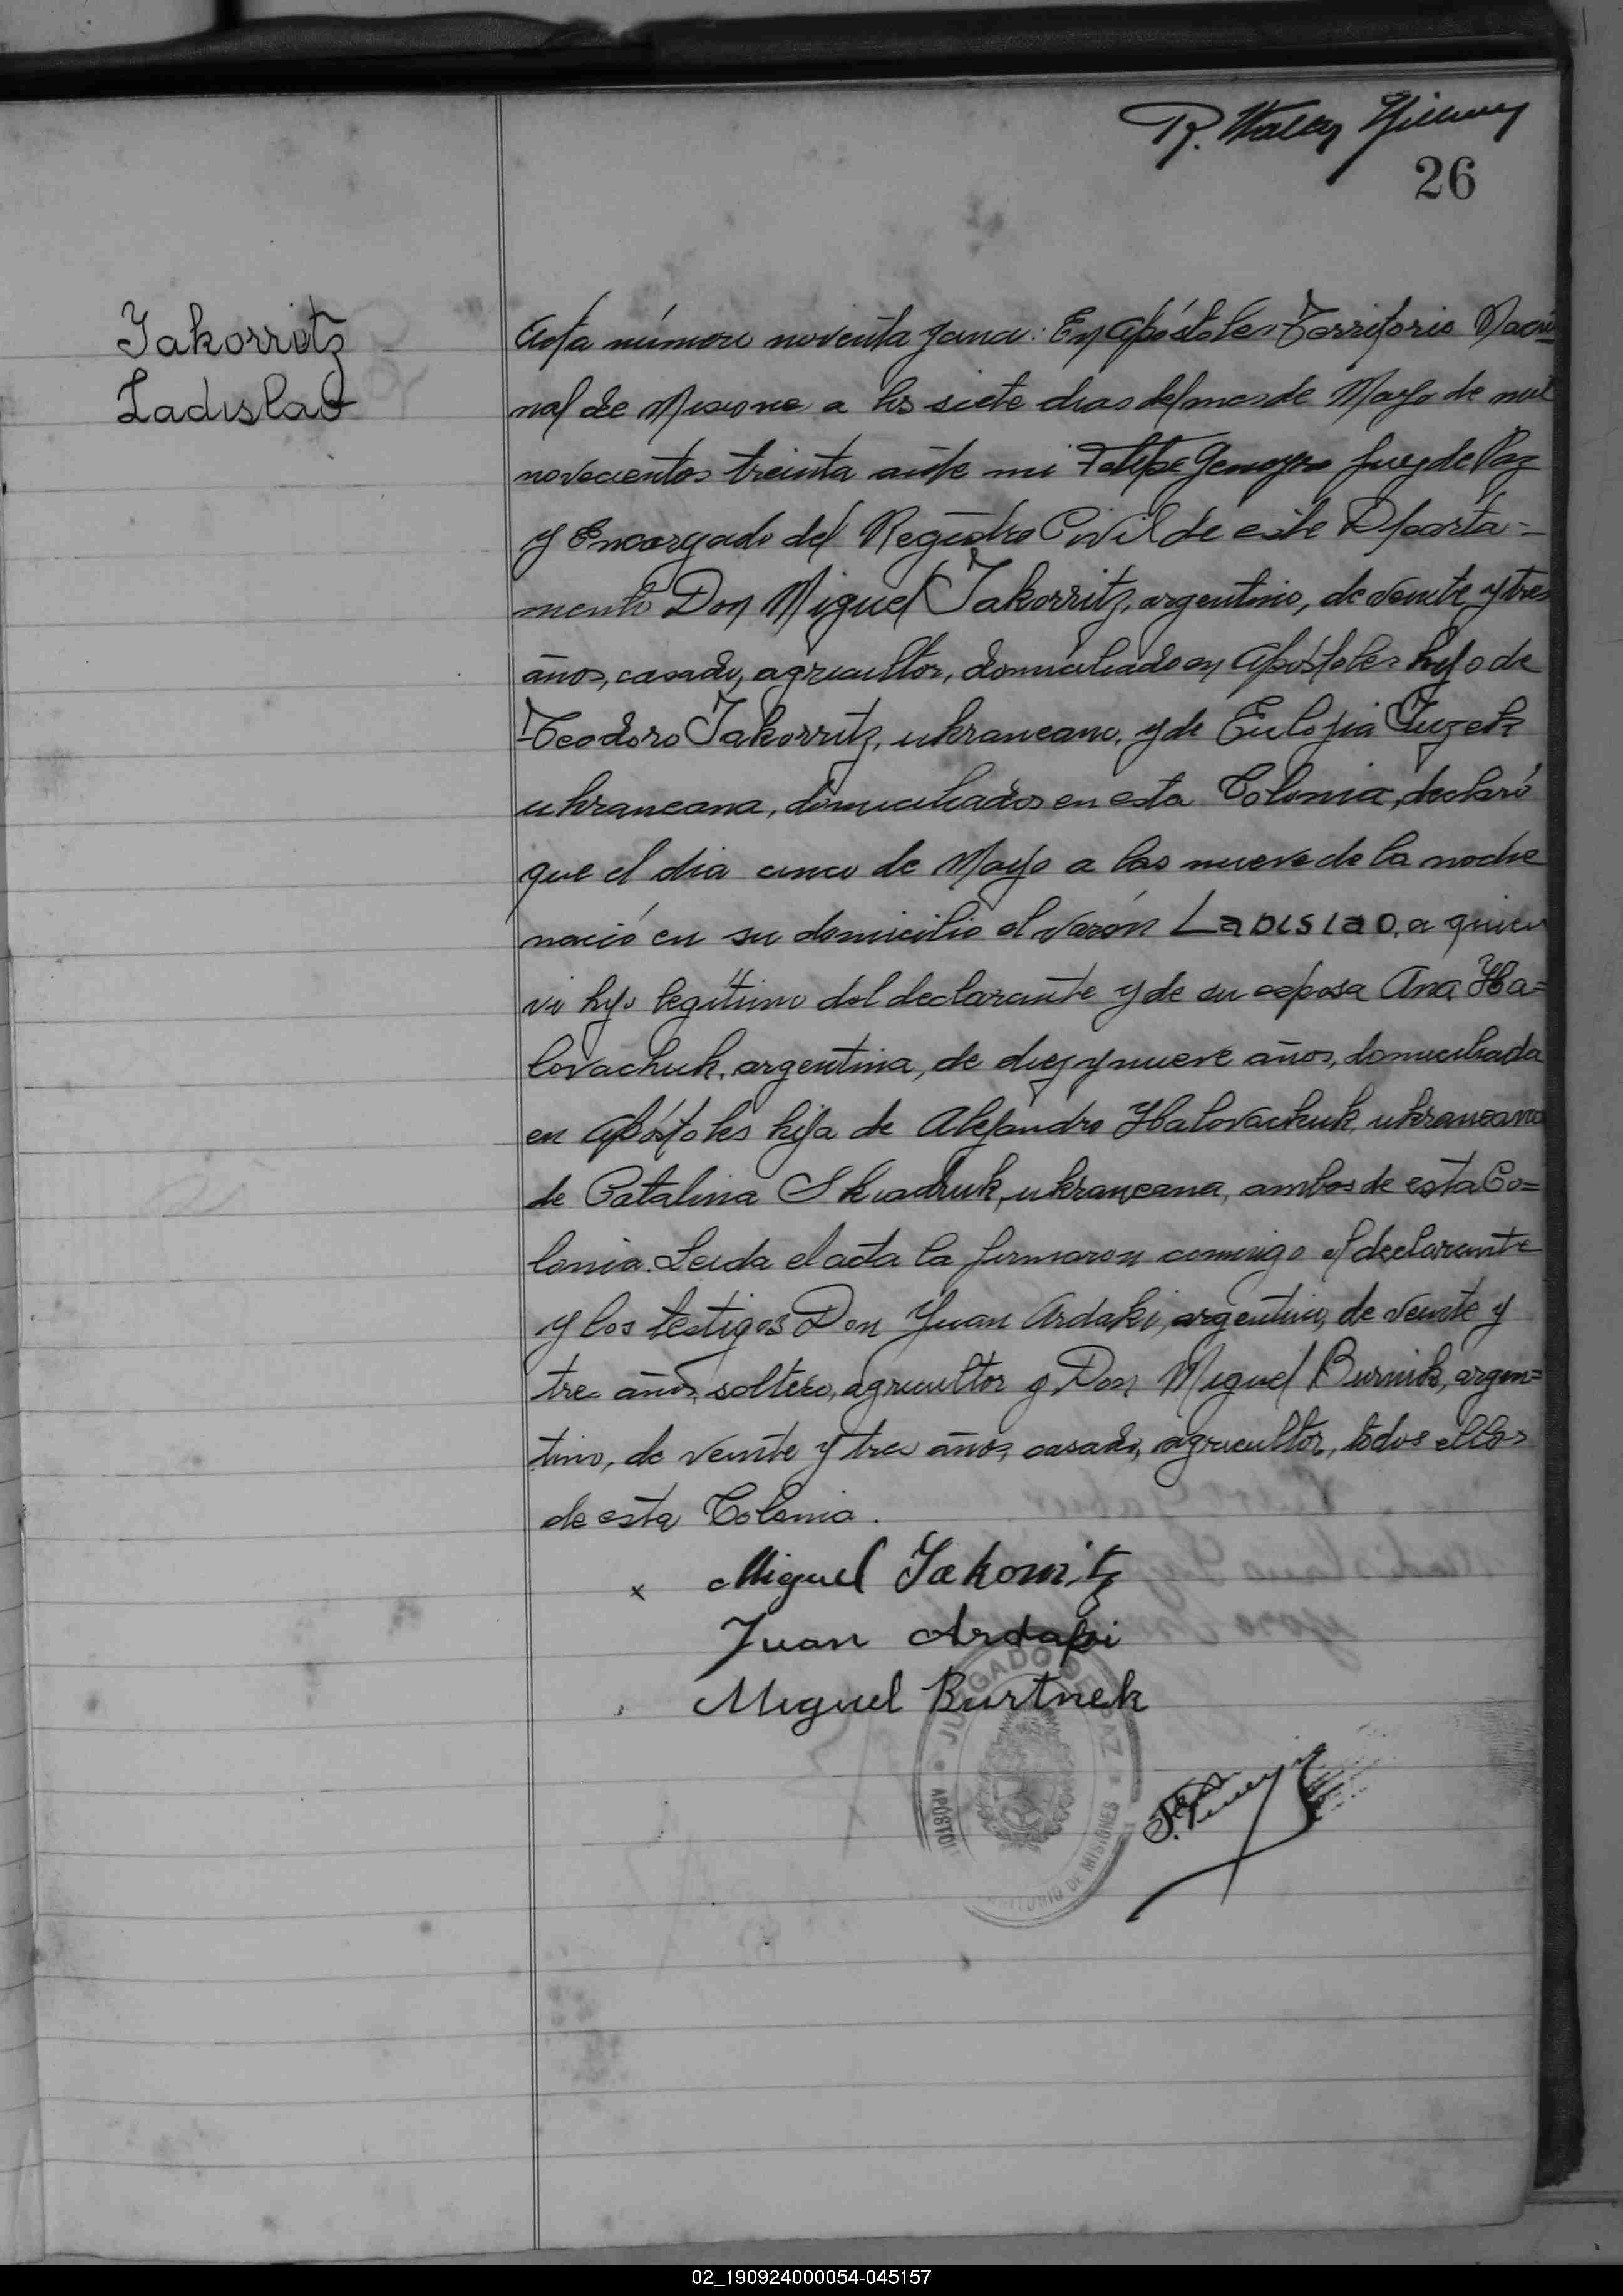 26
Jakorritz
Ladislao
Acta número noventa y una: En Apóstoles Territorio Nacio=
nal de Misiones a los siete dias del mes de Mayo de mil
novecientos treinta ante mi Felipe Juez de Paz
y Encargado del Registro Civil de este Departa=
mento Don Miguel Jakorritz, argentino, de veinte y tres
años, casado, agricultor, domiciliado en Apóstoles hijo de
Teodoro Jakorritz, ukraneano, y de Eulojia
ukraneana, domiciliados en esta Colonia, declaró
que el dia cinco de Mayo a las nueve de la noche
nació en su domicilio el varón Ladislao, a quien
vi hijo legítimo del declarante y de su esposa Ana Ha=
lovachuk, argentina, de diez y nueve años, domiciliada
en Apóstoles hija de Alejandro Halovachuk, ukraneano
de Catalina Skiadruk, ukraneana, ambos de esta Co=
lonia. Leida el acta la firmaron conmigo el declarante
y los testigos Don Juan Ardaki, argentino, de veinte y
tres años, soltero, agricultor y Don Miguel Burnik, argen=
tino, de veinte y tres años, casado, agricultor, todos ellos
de esta Colonia.
x Miguel Jakorritz
Juan Ardaki
Miguel Burtnek
JUZGADO DE PAZ
APOSTOL
TERRITORIO DE MISIONES
02_190924000054-045157